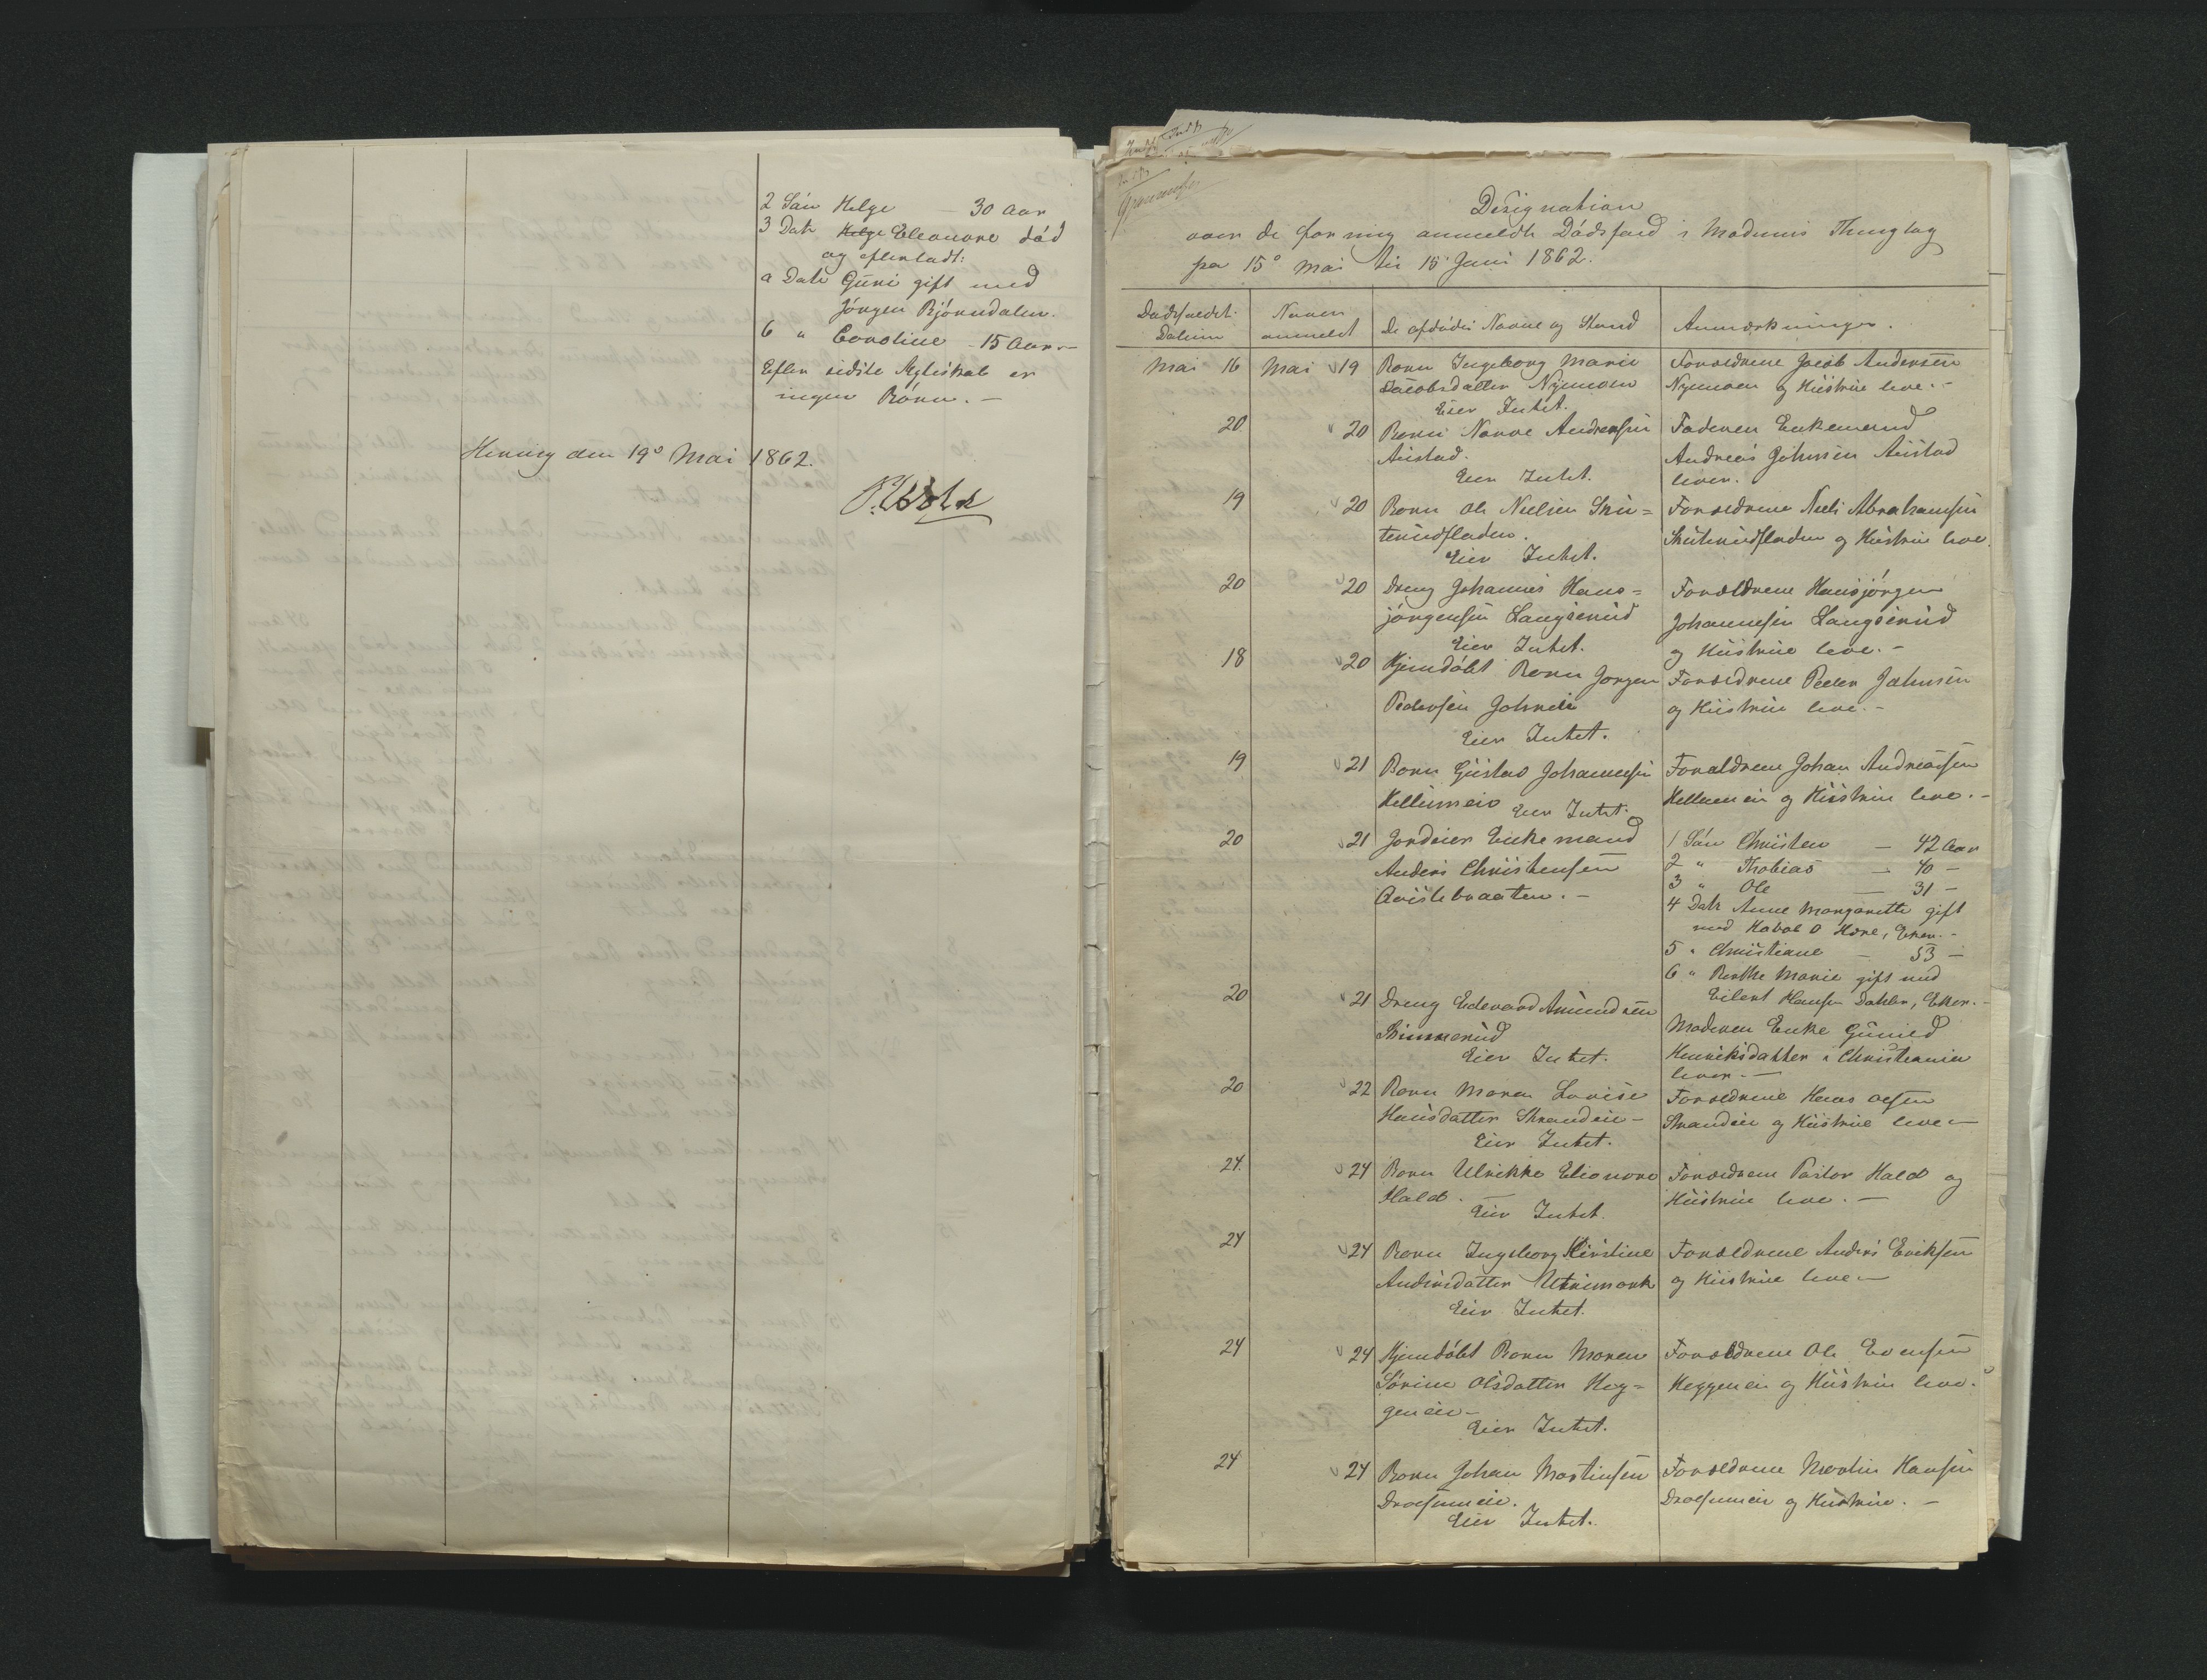 2 Søn Helge — 30 Aar
3 Datr Helge Eleonore død
og efterladt:
a Datr Guni gift med
Jørgen Bjørndalen.
6 " Caroline - 15 Aar —
Efter sidste Ægteskab er
ingen Børn. —
den 19º Mai 1862.
Designation
over de for mig anmeldte Dødsfald i Modums Thinglag
fra 15º Mai til 15 Juni 1862.
Dødsfaldets Datum
Naar anmeldt
De afdødes Navne og Stand
Anmærkninger.
Mai 16 Mai 19 Barn Ingeborg Marie
Jacobsdatter Nymoen
Eier Intet.
Forældrene Jacob Andersen
Nymoen og Hustrue leve. -
20 20 Barn Andreasen
Austad.
Eier Intet.
Faderen Enkemand
Andreas Johnsen Austad
lever.
19 20 Barn Ole Nielsen Sku=
terudfladen.
Eier Intet.
Forældrene Niels Abrahamsen
Skuterudfladen og Hustrue leve.
20 20 Dreng Johannes Hans=
jørgensen Langserud
Eier Intet.
Forældrene Hansjørgen
Johannesen Langserud
og Hustrue leve. -
18 20 Hjemdøbt Barn Jørgen
Pedersen
Eier Intet.
Forældrene Peder Johnsen
og Hustrue leve. -
19 21 Barn Gustav Johannesen
Hellumeie Eier Intet.
Forældrene Johan Andreasen
Hellumeie og Hustrue leve. -
20 21 Gordeier Enkemand
Anders Christensen
Aaslebraaten. -
1 Søn Christen — 42 Aar
2 " Thobias — 40 —
3 " Ole — 31 —
4 Datr Anne Margrethe gift
med O Høre, Eker. -
5 " Christiane — 53 —
6 " Berthe Marie gift med
Eilert Hansen Dahler, Eker. -
20 21 Dreng Edevard Amundsen
Simmerud
Eier Intet.
Moderen Enke Gunild
Henriksdatter i Christiania
lever. —
20 22 Barn Maren Lovise
Hansdatter Strandeie -
Eier Intet.
Forældrene Hans Olsen
Strandeie og Hustrue leve —
24. 24 Barn Ulrikke Elionore
Hald. —
Eier Intet.
Forældrene Pastor Hald og
Hustrue leve. —
24 24 Barn Ingeborg Kirstine
Andersdatter
Eier Intet.
Forældrene Anders Eriksen
og Hustrue leve —
24 24 Hjemdøbt Barn Maren
Sørine Olsdatter Heg=
geneie -
Eier Intet.
Forældrene Ole Evensen
Heggeneie og Hustrue leve.
24 24 Barn Johan Martinsen
Drolsumeie.
Eier Intet.
Forældrene Martin Hansen
Drolsumeie og Hustrue. —